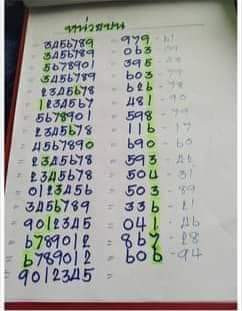 หน่วยบน
3456789 = 979 - 61
3456789 = 063
5678901 = 395
3456789 = 603
2345678 = 626 - 78
1234567 = 481 - 90
5678901 = 598
2345678 = 116 - 17
4567890 = 690 - 60
2345678 = 593 - 26
2345678 = 504 - 31
0123456 = 503 - 89
3456789 = 336 - 21
9012345 = 041 - 26
6789012 = 867 - 28
6789012 = 606 - 94
9012345 =